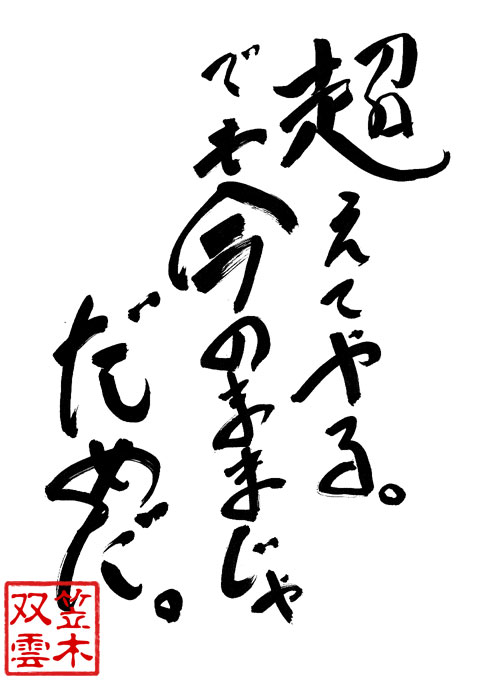 超えてやる。
でも今のままじゃ
だめだ。
笠木
双雲